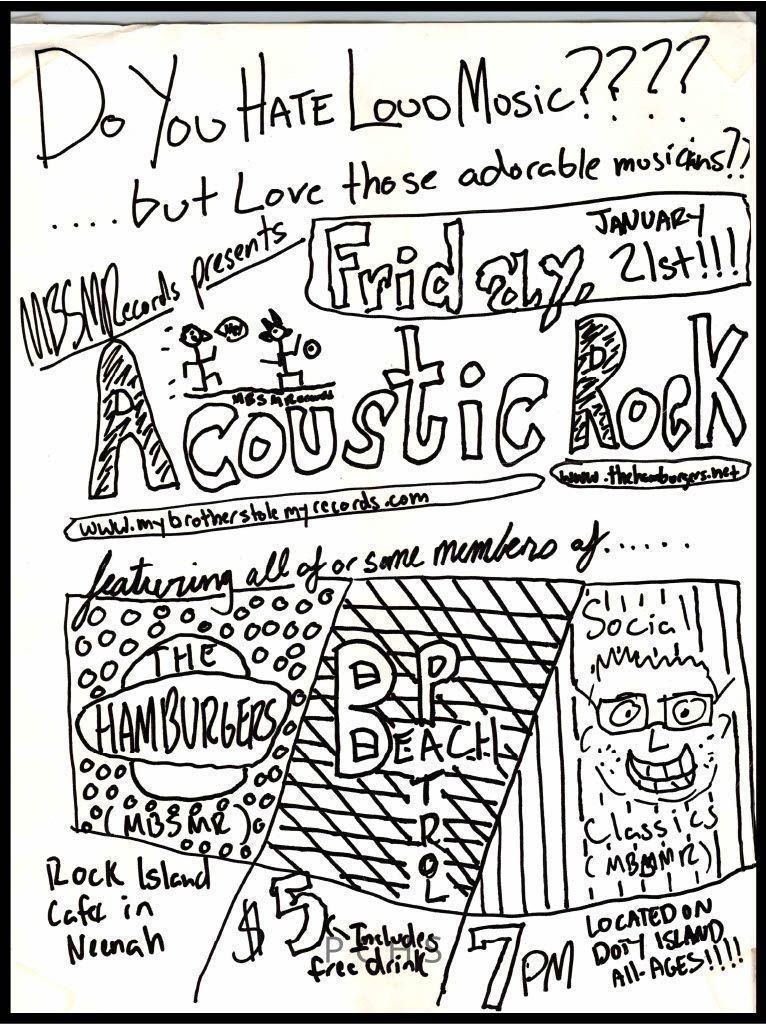 Do You HATE LOUD MUSIC????
....but Love those adorable musicians??
MBSMRecords presents
Friday, JANUARY 21st!!!
Hey
MBSMRecords
ACOUSTIC ROCK
www.thehamburgers.net
www.mybrotherstolemyrecords.com
featuring all of or some members of......
THE
HAMBURGERS
(MBSMR)
BP
BEACH
TROL
Social
Classics
(MBMMR)
Rock Island
Cafe in
Neenah
$5
Includes
free drink
PCHS
7PM
LOCATED ON
DOTY ISLAND
All-AGES!!!!